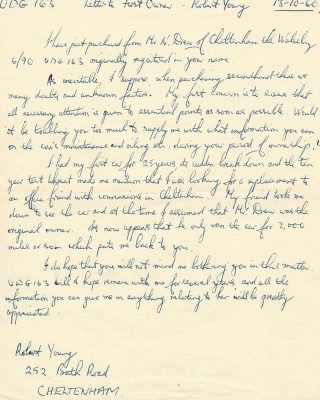 UDG 163 Letter to First Owner - Robert Young 13-10-60
I have just purchased from Mr N. Drew of Cheltenham the Wolseley
6/90 UDG 163 originally registered in your name.
As inevitable, I suppose when purchasing secondhand there are
many doubts and unknown factors. My first concern is to ensure that
all necessary attention is given to essential points as soon as possible. Would
it be troubling you too much to supply me with what information you can
on the car's maintenance and oiling etc. during your period of ownership?
I had my first car for 25 years its sudden break down and the ten
year test aspect make me mention that I was looking for a replacement to
an office friend with connexions in Cheltenham. My friend took me
down to see the car and at the time I assumed that Mr Drew was the
original owner. It now appears that he only ran the car for 2,000
miles or so which puts me back to you.
I do hope that you will not mind me bothering you in this matter.
UDG 163 will I hope remain with me for several years and all the
information you can give me in anything relating to her will be greatly
appreciated.
Robert Young
252 Bath Road
CHELTENHAM.